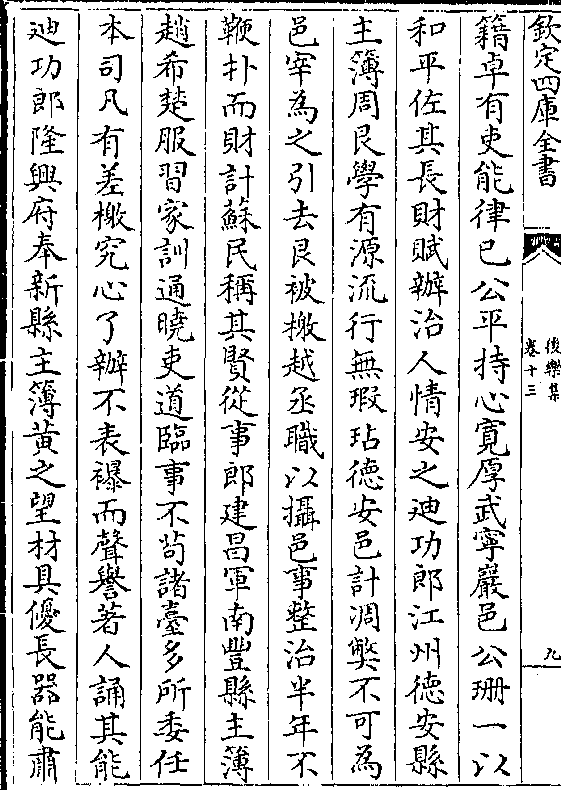 欽定四庫全書
後樂集
卷十三
九
籍卓有吏能律已公平持心寛厚武寧巖邑公珊一以
和平佐其長財賦辦治人情安之迪功郎江州德安縣
主簿周艮學有源流行無瑕玷德安邑計凋弊不可為
邑宰為之引去艮被檄越丞職以攝邑事整治半年不
鞭扑而財計蘇民稱其賢從事郎建昌軍南豐縣主簿
趙希楚服習家訓通曉吏道臨事不茍諸臺多所委任
本司凡有差檄究心了辦不表襮而聲譽著人誦其能
迪功郎隆興府奉新縣主簿黄之望材具優長器能肅